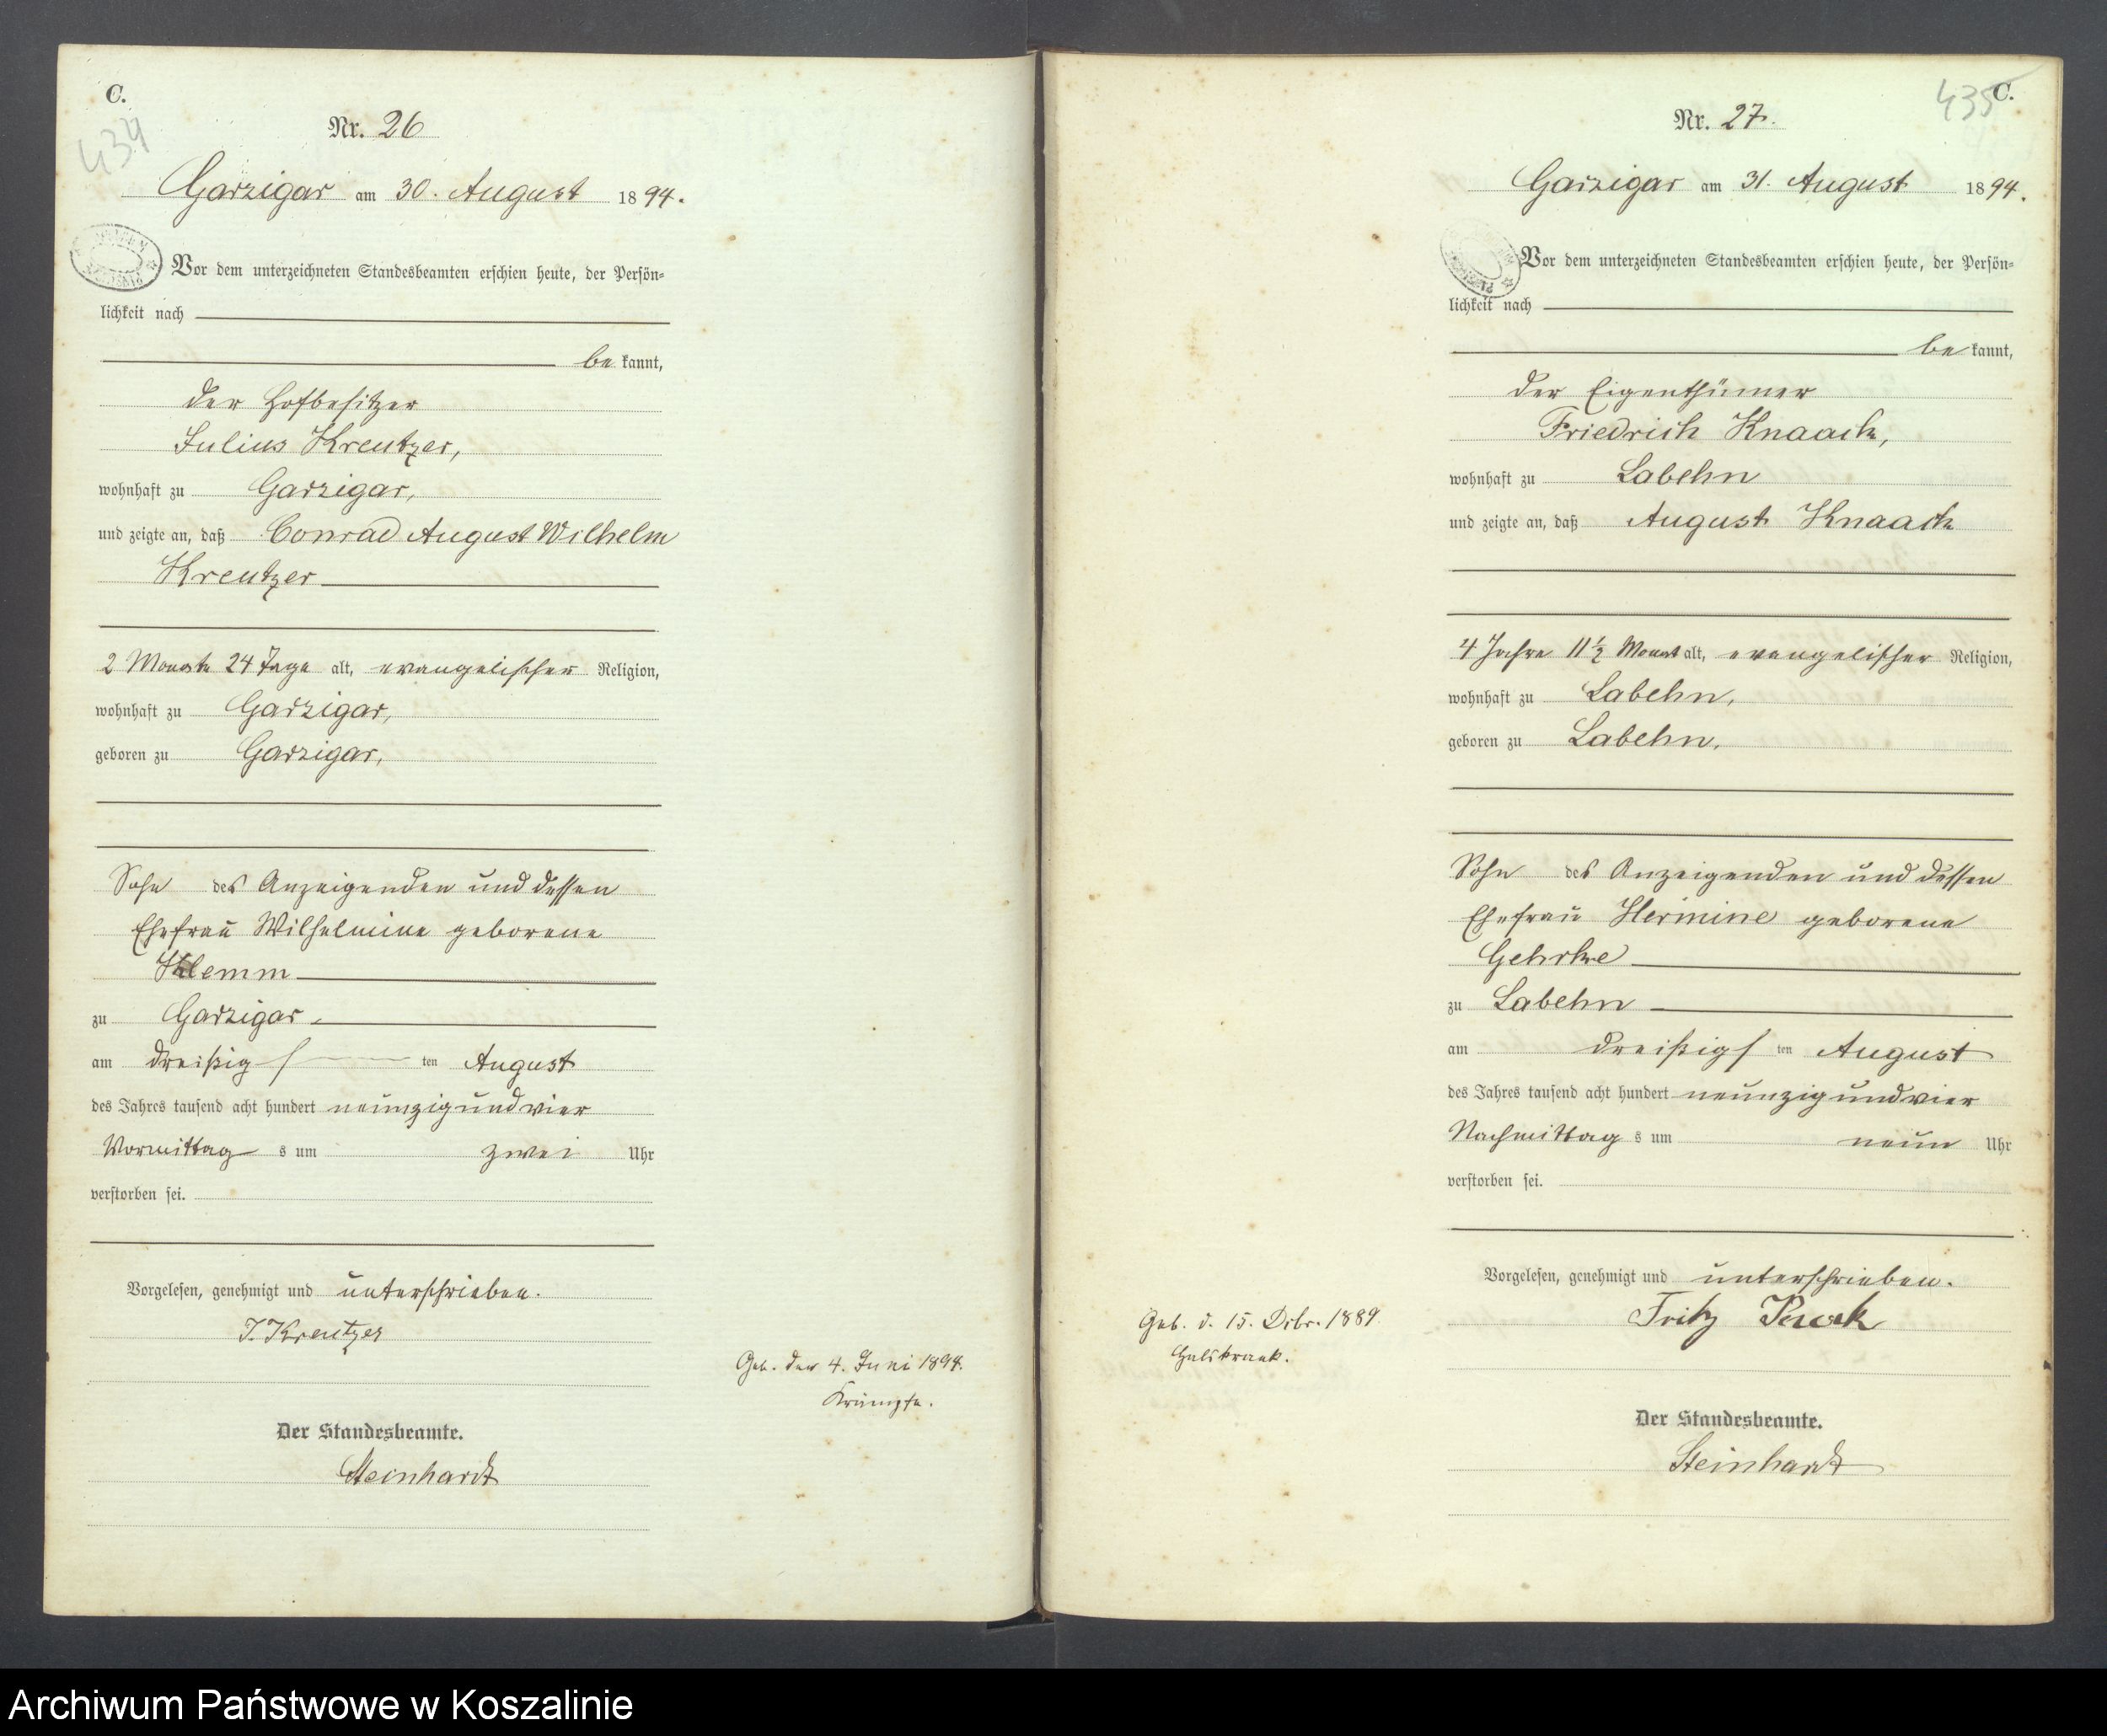 C.
434
Nr. 26
Garzigar am 30. August 1894.
Vor dem unterzeichneten Standesbeamten erschien heute, der Persön=
lichkeit nach
bekannt,
der Hofbesitzer
Julius Kreutzer,
wohnhaft zu Garzigar,
und zeigte an, daß Conrad August Wilhelm
Kreutzer
2 Monate 24 Tage alt, evangelischer Religion,
wohnhaft zu Garzigar,
geboren zu Garzigar,
Sohn des Anzeigenden und dessen
Ehefrau Wilhelmine geborene
Klemm
zu Garzigar
am dreißigsten August
des Jahres tausend acht hundert neunzig und vier
Vormittags um zwei Uhr
verstorben sei.
Vorgelesen, genehmigt und unterschrieben.
J. Kreutzer
Der Standesbeamte.
Steinhardt
Geb. den 4. Juni 1894.
Krämpfe.
435
C.
Nr. 27.
Garzigar am 31. August 1894.
Vor dem unterzeichneten Standesbeamten erschien heute, der Persön=
lichkeit nach
bekannt,
der Eigenthümer
Friedrich Knaack,
wohnhaft zu Labehn
und zeigte an, daß August Knaack
4 Jahre 11 1/2 Monat alt, evangelischer Religion,
wohnhaft zu Labehn,
geboren zu Labehn,
Sohn des Anzeigenden und dessen
Ehefrau Hermine geborene
Gehrke
zu Labehn
am dreißigsten August
des Jahres tausend acht hundert neunzig und vier
Nachmittags um neun Uhr
verstorben sei.
Vorgelesen, genehmigt und unterschrieben.
Fritz
Der Standesbeamte.
Steinhardt
Geb. d. 15. 1889.
Halskrank.
Archiwum Państwowe w Koszalinie